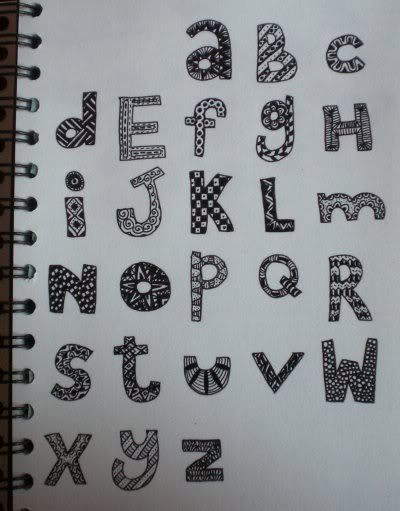 a B c
d E f g H
i J K L m
N O P Q R
S t u v W
X y z